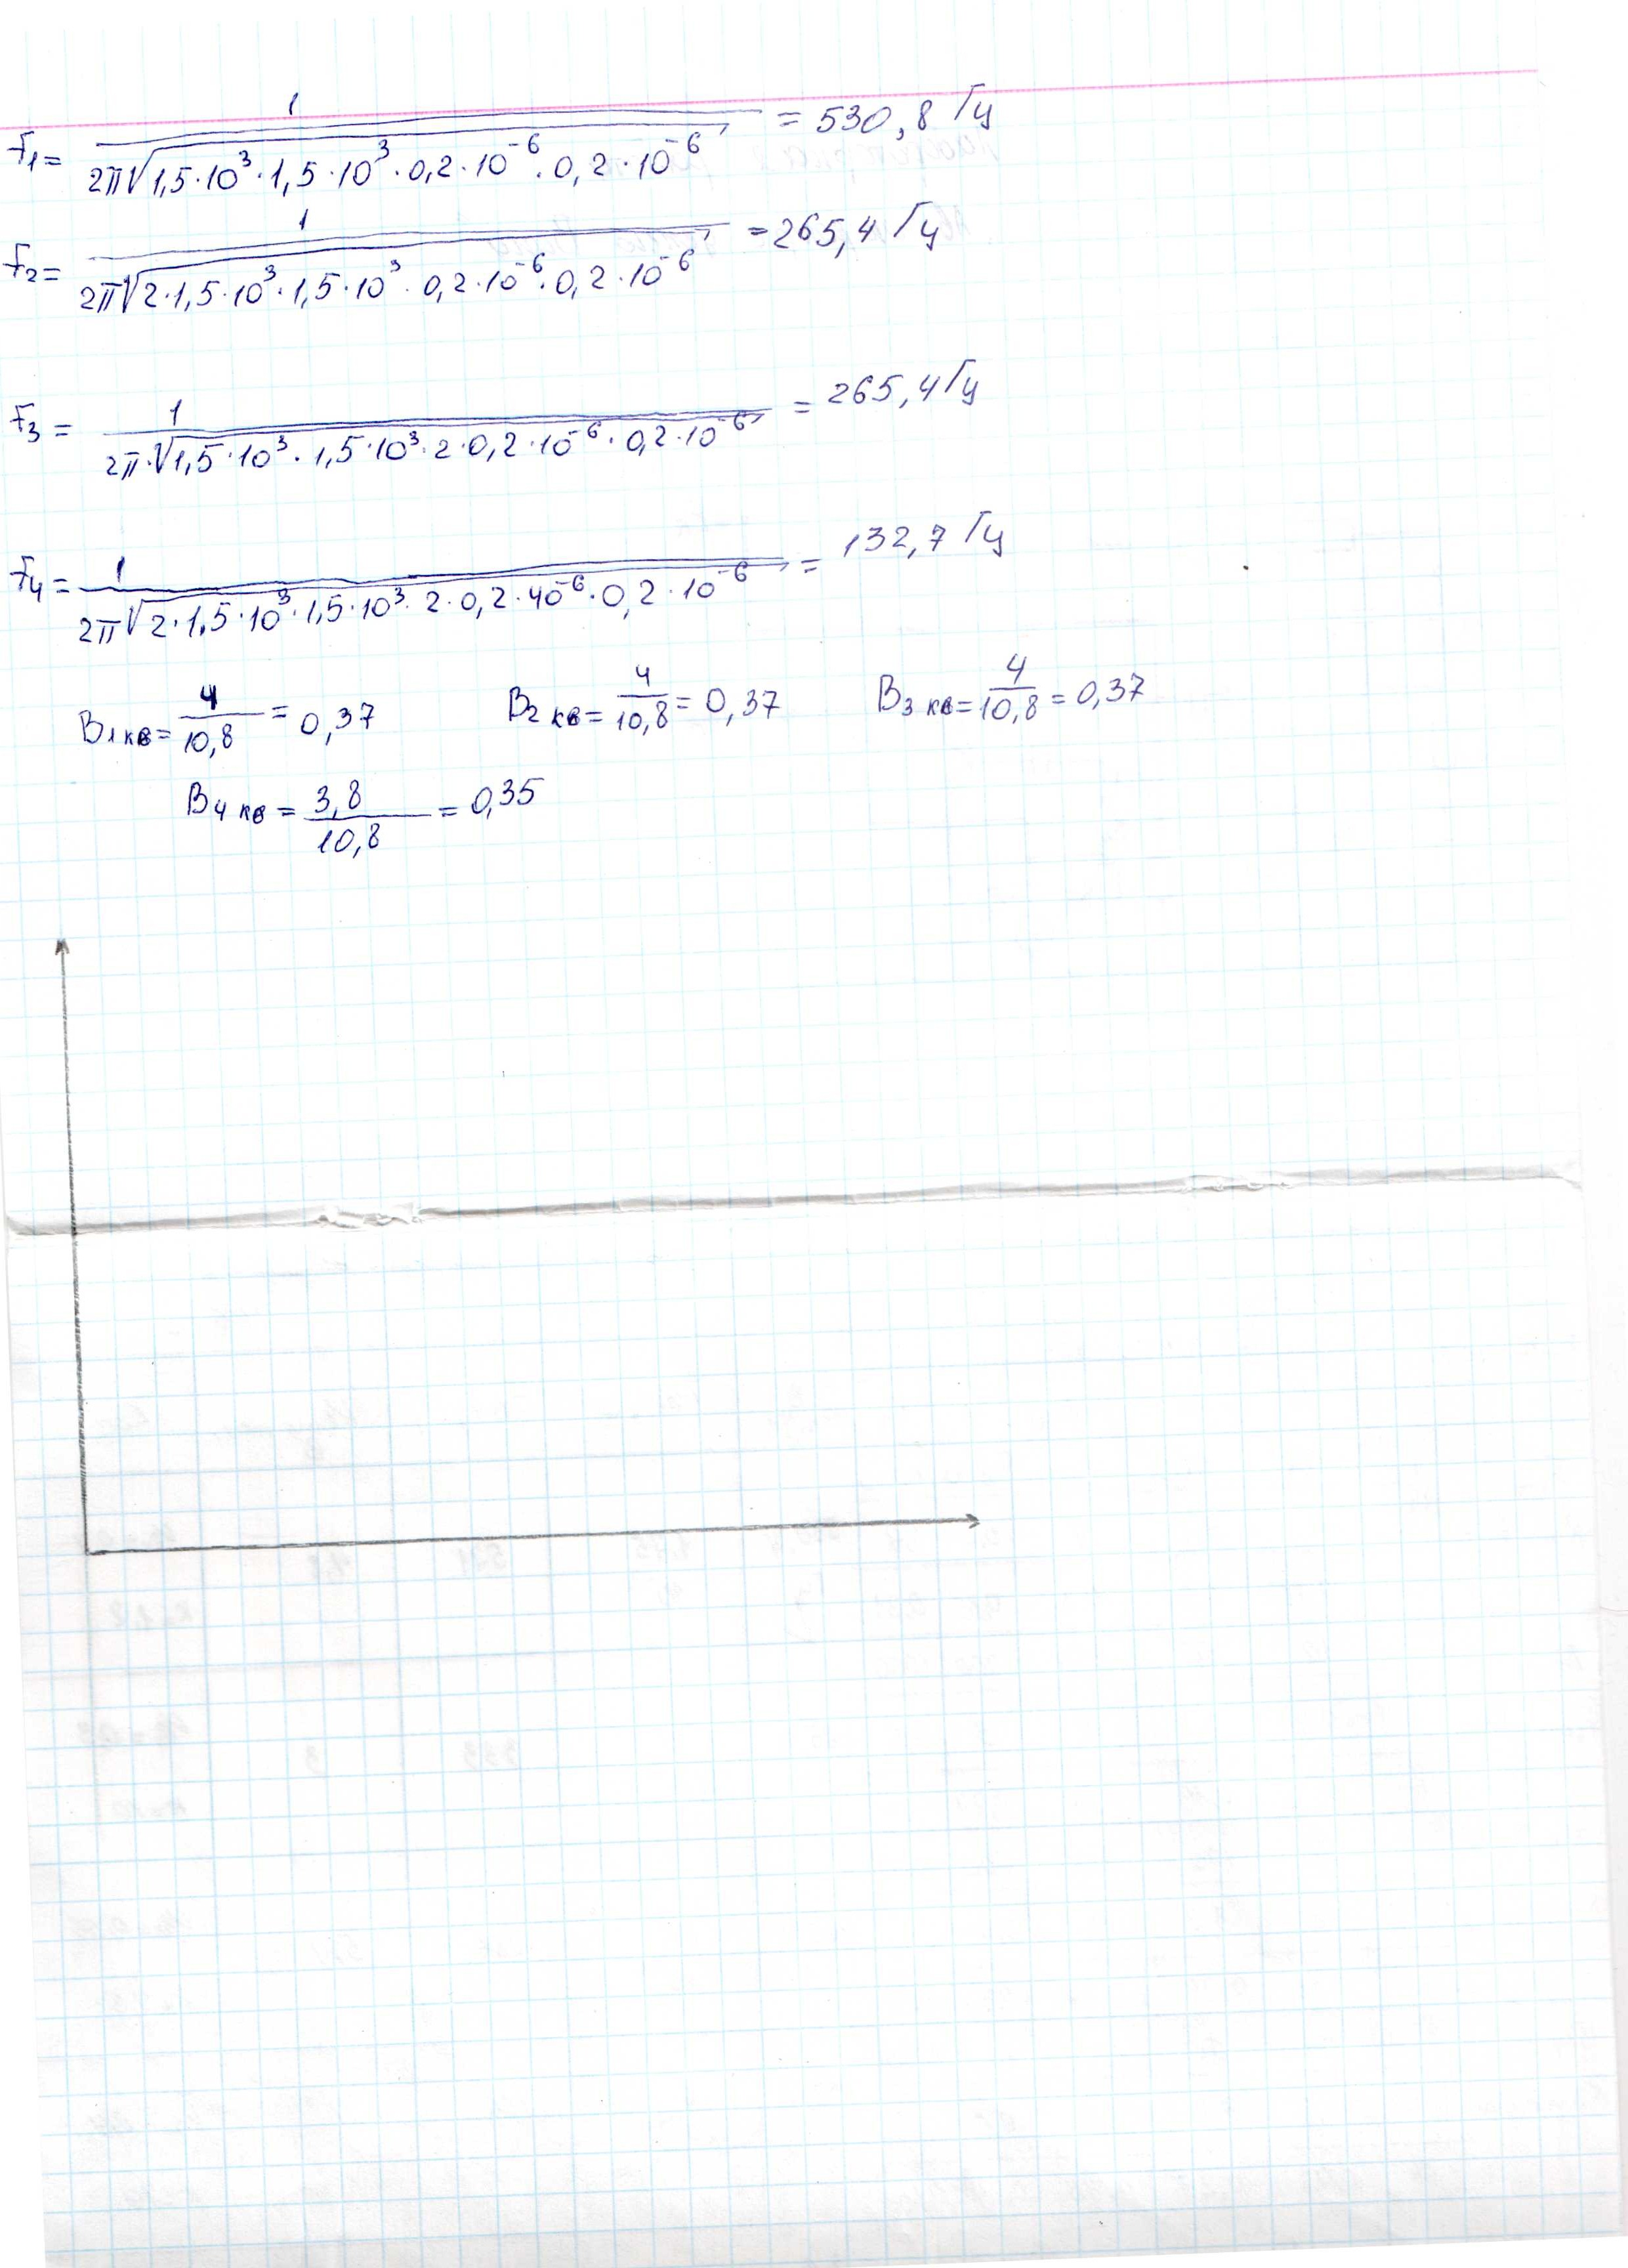 F₁ = 1 / 2π√1,5·10³·1,5·10³·0,2·10⁻⁶·0,2·10⁻⁶ = 530,8 Гц
F₂ = 1 / 2π√2·1,5·10³·1,5·10³·0,2·10⁻⁶·0,2·10⁻⁶ = 265,4 Гц
F₃ = 1 / 2π·√1,5·10³·1,5·10³·2·0,2·10⁻⁶·0,2·10⁻⁶ = 265,4 Гц
F₄ = 1 / 2π√2·1,5·10³·1,5·10³·2·0,2·10⁻⁶·0,2·10⁻⁶ = 132,7 Гц
B₁ кв = 4 / 10,8 = 0,37 B₂ кв = 4 / 10,8 = 0,37 B₃ кв = 4 / 10,8 = 0,37
B₄ кв = 3,8 / 10,8 = 0,35